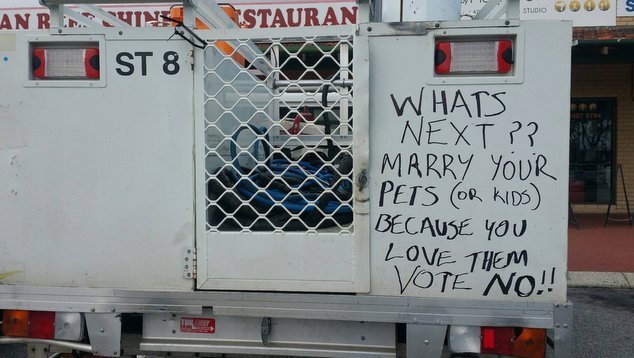 RESTAURAN
STUDIO
ST 8
9307 5704
WHATS
NEXT ??
MARRY YOU'R
PETS (OR KIDS)
BECAUSE YOU
LOVE THEM
VOTE NO!!